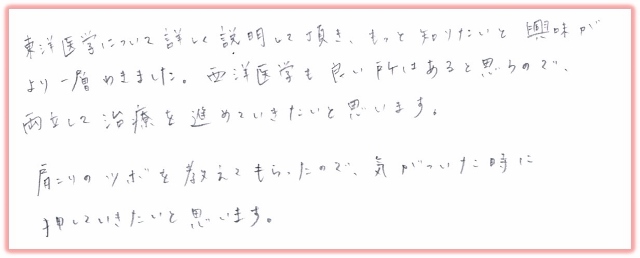 東洋医学について詳しく説明して頂き、もっと知りたいと興味が
より一層わきました。西洋医学も良い所はあると思うので、
両立して治療を進めていきたいと思います。
肩こりのツボを教えてもらったので、気がついた時に
押していきたいと思います。